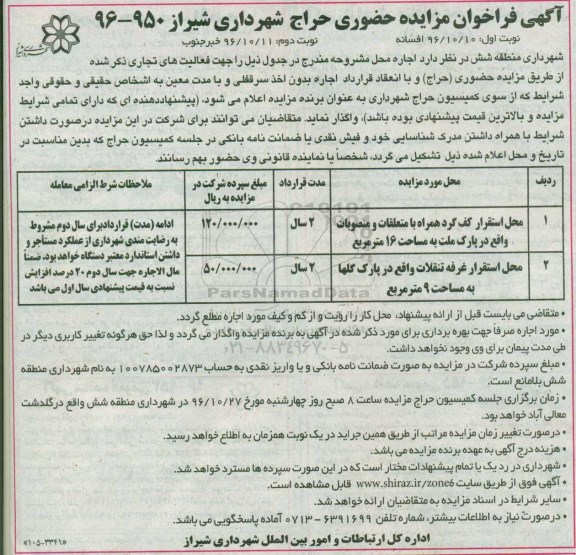 آگهی فراخوان مزایده حضوری حراج شهرداری شیراز ۹۵۰-۹۶
نوبت اول: ۹۶/۱۰/۱۰ افسانه
نوبت دوم: ۹۶/۱۰/۱۱ خبرجنوب
شهرداری منطقه شش در نظر دارد اجاره محل مشروحه مندرج در جدول ذیل را جهت فعالیت های تجاری ذکر شده
از طریق مزایده حضوری (حراج) و با انعقاد قرارداد اجاره بدون اخذ سرقفلی و با مدت معین به اشخاص حقیقی و حقوقی واجد
شرایط که از سوی کمیسیون حراج شهرداری به عنوان برنده مزایده اعلام می شود، (پیشنهاددهنده ای که دارای تمامی شرایط
مزایده و بالاترین قیمت پیشنهادی بوده باشد)، واگذار نماید. متقاضیان می توانند برای شرکت در این مزایده درصورت داشتن
شرایط با همراه داشتن مدرک شناسایی خود و فیش نقدی یا ضمانت نامه بانکی در جلسه کمیسیون حراج که بدین مناسبت در
تاریخ و محل اعلام شده ذیل تشکیل می گردد، شخصاً یا نماینده قانونی وی حضور بهم رسانند.
ردیف محل مورد مزایده مدت قرارداد مبلغ سپرده شرکت در مزایده به ریال ملاحظات شرط الزامی معامله
۱ محل استقرار کف گرد همراه با متعلقات و منصوبات واقع در پارک ملت به مساحت ۱۶ مترمربع ۲ سال ۱۲۰/۰۰۰/۰۰۰
۲ محل استقرار غرفه تنقلات واقع در پارک گلها به مساحت ۹ مترمربع ۲ سال ۵۰/۰۰۰/۰۰۰
ادامه (مدت) قرارداد برای سال دوم مشروط
به رضایت مندی شهرداری از عملکرد مستأجر و
داشتن استاندارد معتبر دستگاه خواهد بود. ضمناً
مال الاجاره جهت سال دوم ۲۰ درصد افزایش
نسبت به قیمت پیشنهادی سال اول می باشد
ParsNamadData
۰۲۱-۸۸۳۴۹۶۷۰-۵
• متقاضی می بایست قبل از ارائه پیشنهاد، محل کار را رویت و از کم و کیف مورد اجاره مطلع گردد.
• مورد اجاره صرفاً جهت بهره برداری برای مورد ذکر شده در آگهی به برنده مزایده واگذار می گردد و لذا حق هرگونه تغییر کاربری دیگر در
طی مدت پیمان برای وی وجود نخواهد داشت.
• مبلغ سپرده شرکت در مزایده به صورت ضمانت نامه بانکی و یا واریز نقدی به حساب ۱۰۰۷۸۵۰۰۲۸۷۳ به نام شهرداری منطقه
شش بلامانع است.
• زمان برگزاری جلسه کمیسیون حراج مزایده ساعت ۸ صبح روز چهارشنبه مورخ ۹۶/۱۰/۲۷ در شهرداری منطقه شش واقع در گلدشت
معالی آباد خواهد بود.
• درصورت تغییر زمان مزایده مراتب از طریق همین جراید در یک نوبت همزمان به اطلاع خواهد رسید.
• هزینه درج آگهی به عهده برنده مزایده می باشد.
• شهرداری در رد یک یا تمام پیشنهادات مختار است که در این صورت سپرده ها مسترد خواهد شد.
• آگهی فوق از طریق سایت www.shiraz.ir/zone6 قابل مشاهده است.
• سایر شرایط در اسناد مزایده به متقاضیان ارائه خواهد شد.
• درصورت نیاز به اطلاعات بیشتر، شماره تلفن ۶۳۹۱۶۹۹ - ۰۷۱۳ آماده پاسخگویی می باشد.
اداره کل ارتباطات و امور بین الملل شهرداری شیراز
«۱۰۵-۳۳۴۱»